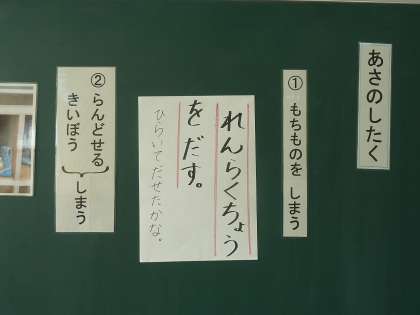 あさのしたく
① もちものを しまう
れんらくちょう
をだす。
ひらいてだせたかな。
② らんどせる
きいぼう
しまう